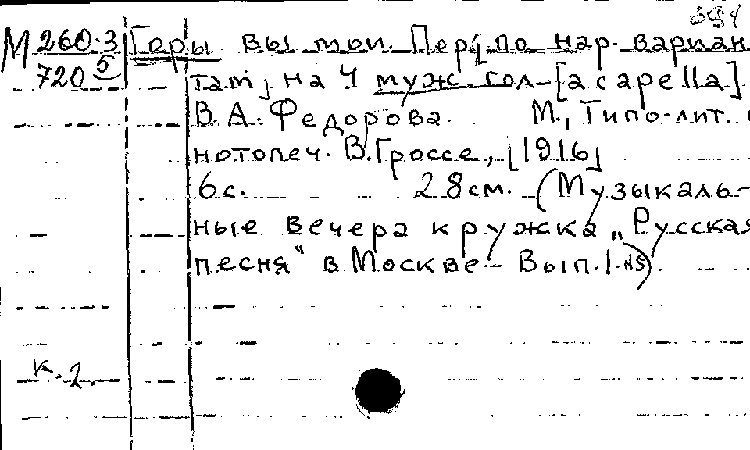 М 260.3/5 Горы вы мои. Пер[ по нар. вариан-
720 там] на 4 муж. гол. [a capella]
В. А. Федорова. М., Типо-лит. и
нотопеч. В. Гроссе, [1916]
6 с. 28 см. (Музыкаль-
ные вечера кружка „Русская
песня" в Москве – Вып. I. №5)
к. 2.